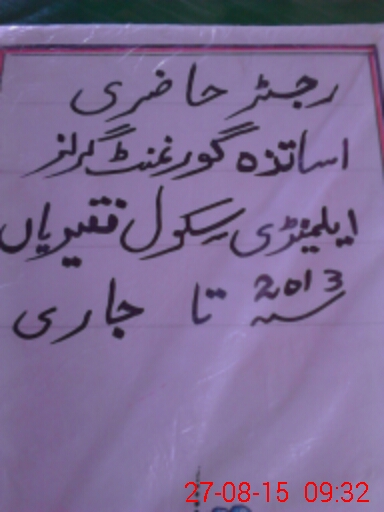 رجسٹر حاضری
اساتذہ گورغنٹ گرلز
ایلیمنٹری سکول فقیریاں
سنہ 2013 تا جاری
27-08-15 09:32